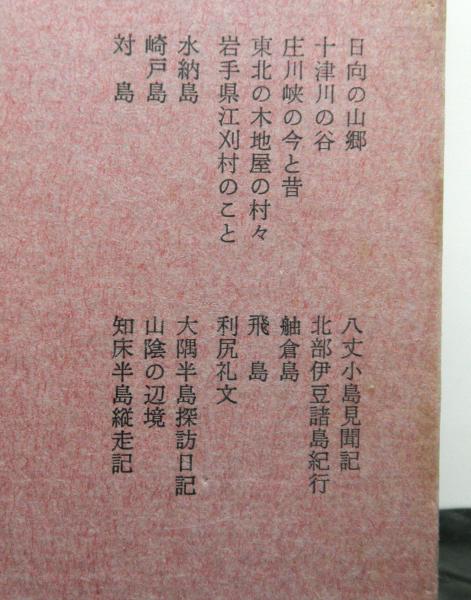 日向の山郷
十津川の谷
庄川峡の今と昔
東北の木地屋の村々
岩手県江刈村のこと
水納島
崎戸島
対島
八丈小島見聞記
北部伊豆諸島紀行
舳倉島
飛島
利尻礼文
大隅半島探訪日記
山陰の辺境
知床半島縦走記